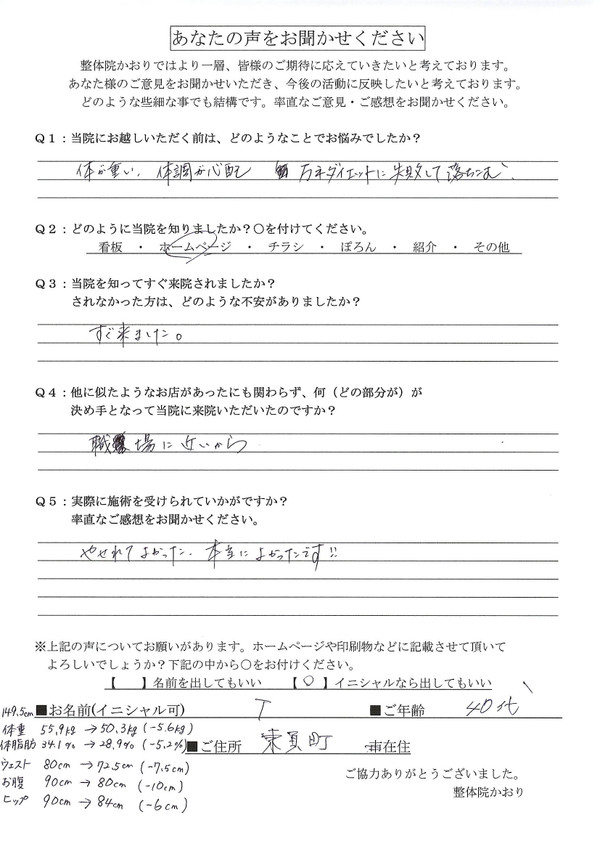 あなたの声をお聞かせください
整体院かおりではより一層、皆様のご期待に応えていきたいと考えております。
あなた様のご意見をお聞かせいただき、今後の活動に反映したいと考えております。
どのような些細な事でも結構です。率直なご意見・ご感想をお聞かせください。
Q1：当院にお越しいただく前は、どのようなことでお悩みでしたか？
体が重い、体調が心配 万年ダイエットに失敗して落ちこむ、
Q2：どのように当院を知りましたか？〇を付けてください。
看板 ・ ホームページ ・ チラシ ・ ぽろん ・ 紹介 ・ その他
Q3：当院を知ってすぐ来院されましたか？
されなかった方は、どのような不安がありましたか？
すぐ来ました。
Q4：他に似たようなお店があったにも関わらず、何（どの部分が）が
決め手となって当院に来院いただいたのですか？
職場に近いから
Q5：実際に施術を受けられていかがですか？
率直なご感想をお聞かせください。
やせれてよかった、本当によかったです!!
※上記の声についてお願いがあります。ホームページや印刷物などに記載させて頂いて
よろしいでしょうか？下記の中から〇をお付けください。
【 】名前を出してもいい 【〇】イニシャルなら出してもいい
149.5cm ■お名前(イニシャル可) T ■ご年齢 40代
体重 55.9kg → 50.3kg (-5.6kg)
体脂肪 34.1% → 28.9% (-5.2%) ■ご住所 東員町 市在住
ウェスト 80cm → 72.5cm (-7.5cm)
お腹 90cm → 80cm (-10cm)
ヒップ 90cm → 84cm (-6cm)
ご協力ありがとうございました。
整体院かおり